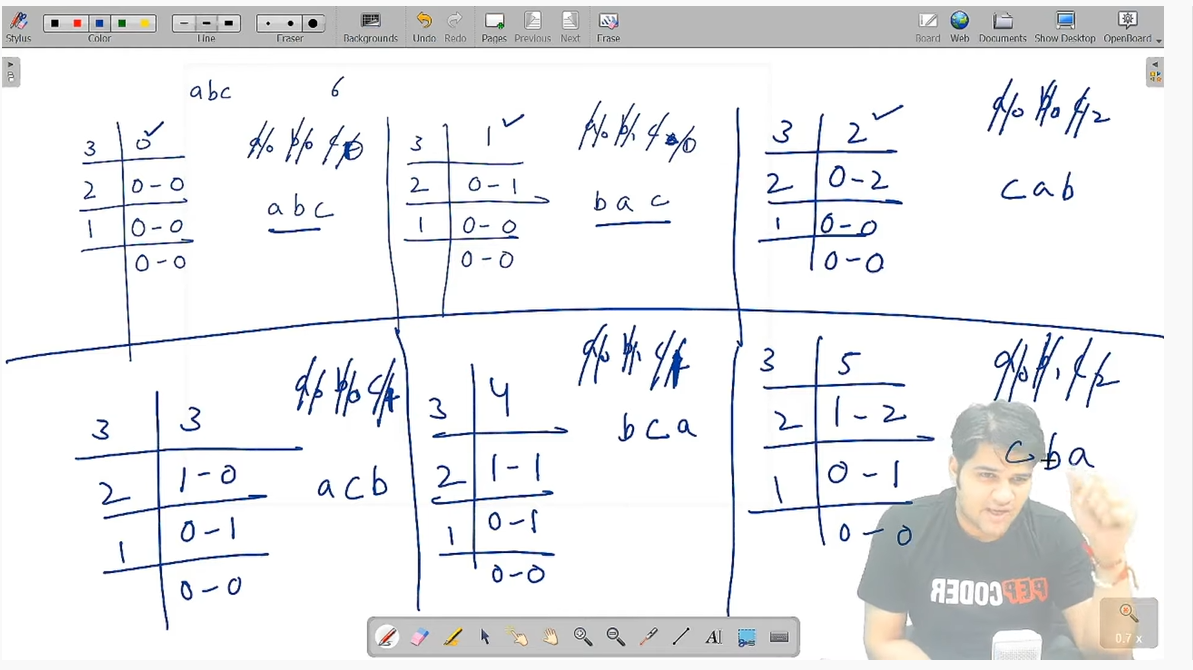 Stylus Color Line Eraser Backgrounds Undo Redo Pages Previous Next Erase Board Web Documents Show Desktop OpenBoard
abc 6
3 0
2 0-0
1 0-0
0-0
abc
3 1
2 0-1
1 0-0
0-0
bac
3 2
2 0-2
1 0-0
0-0
cab
3 3
2 1-0
1 0-1
0-0
acb
3 4
2 1-1
1 0-1
0-0
bca
3 5
2 1-2
1 0-1
0-0
cba
PEPCODER
0.7 x